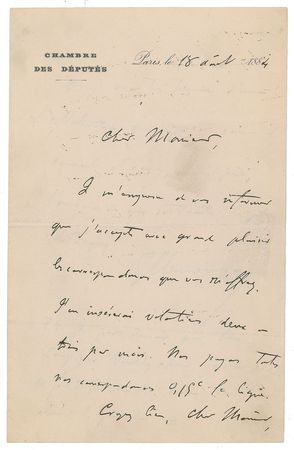 CHAMBRE
DES DÉPUTÉS
Paris, le 18 août 1884
Cher Monsieur,
Je m'empresse de vous informer
que j'accepte avec grand plaisir
les correspondances que vous m'offrez.
J'en insérerai volontiers deux ou
trois par mois. Nous payons toutes
nos correspondances 0,15c la ligne.
Croyez bien, cher Monsieur,